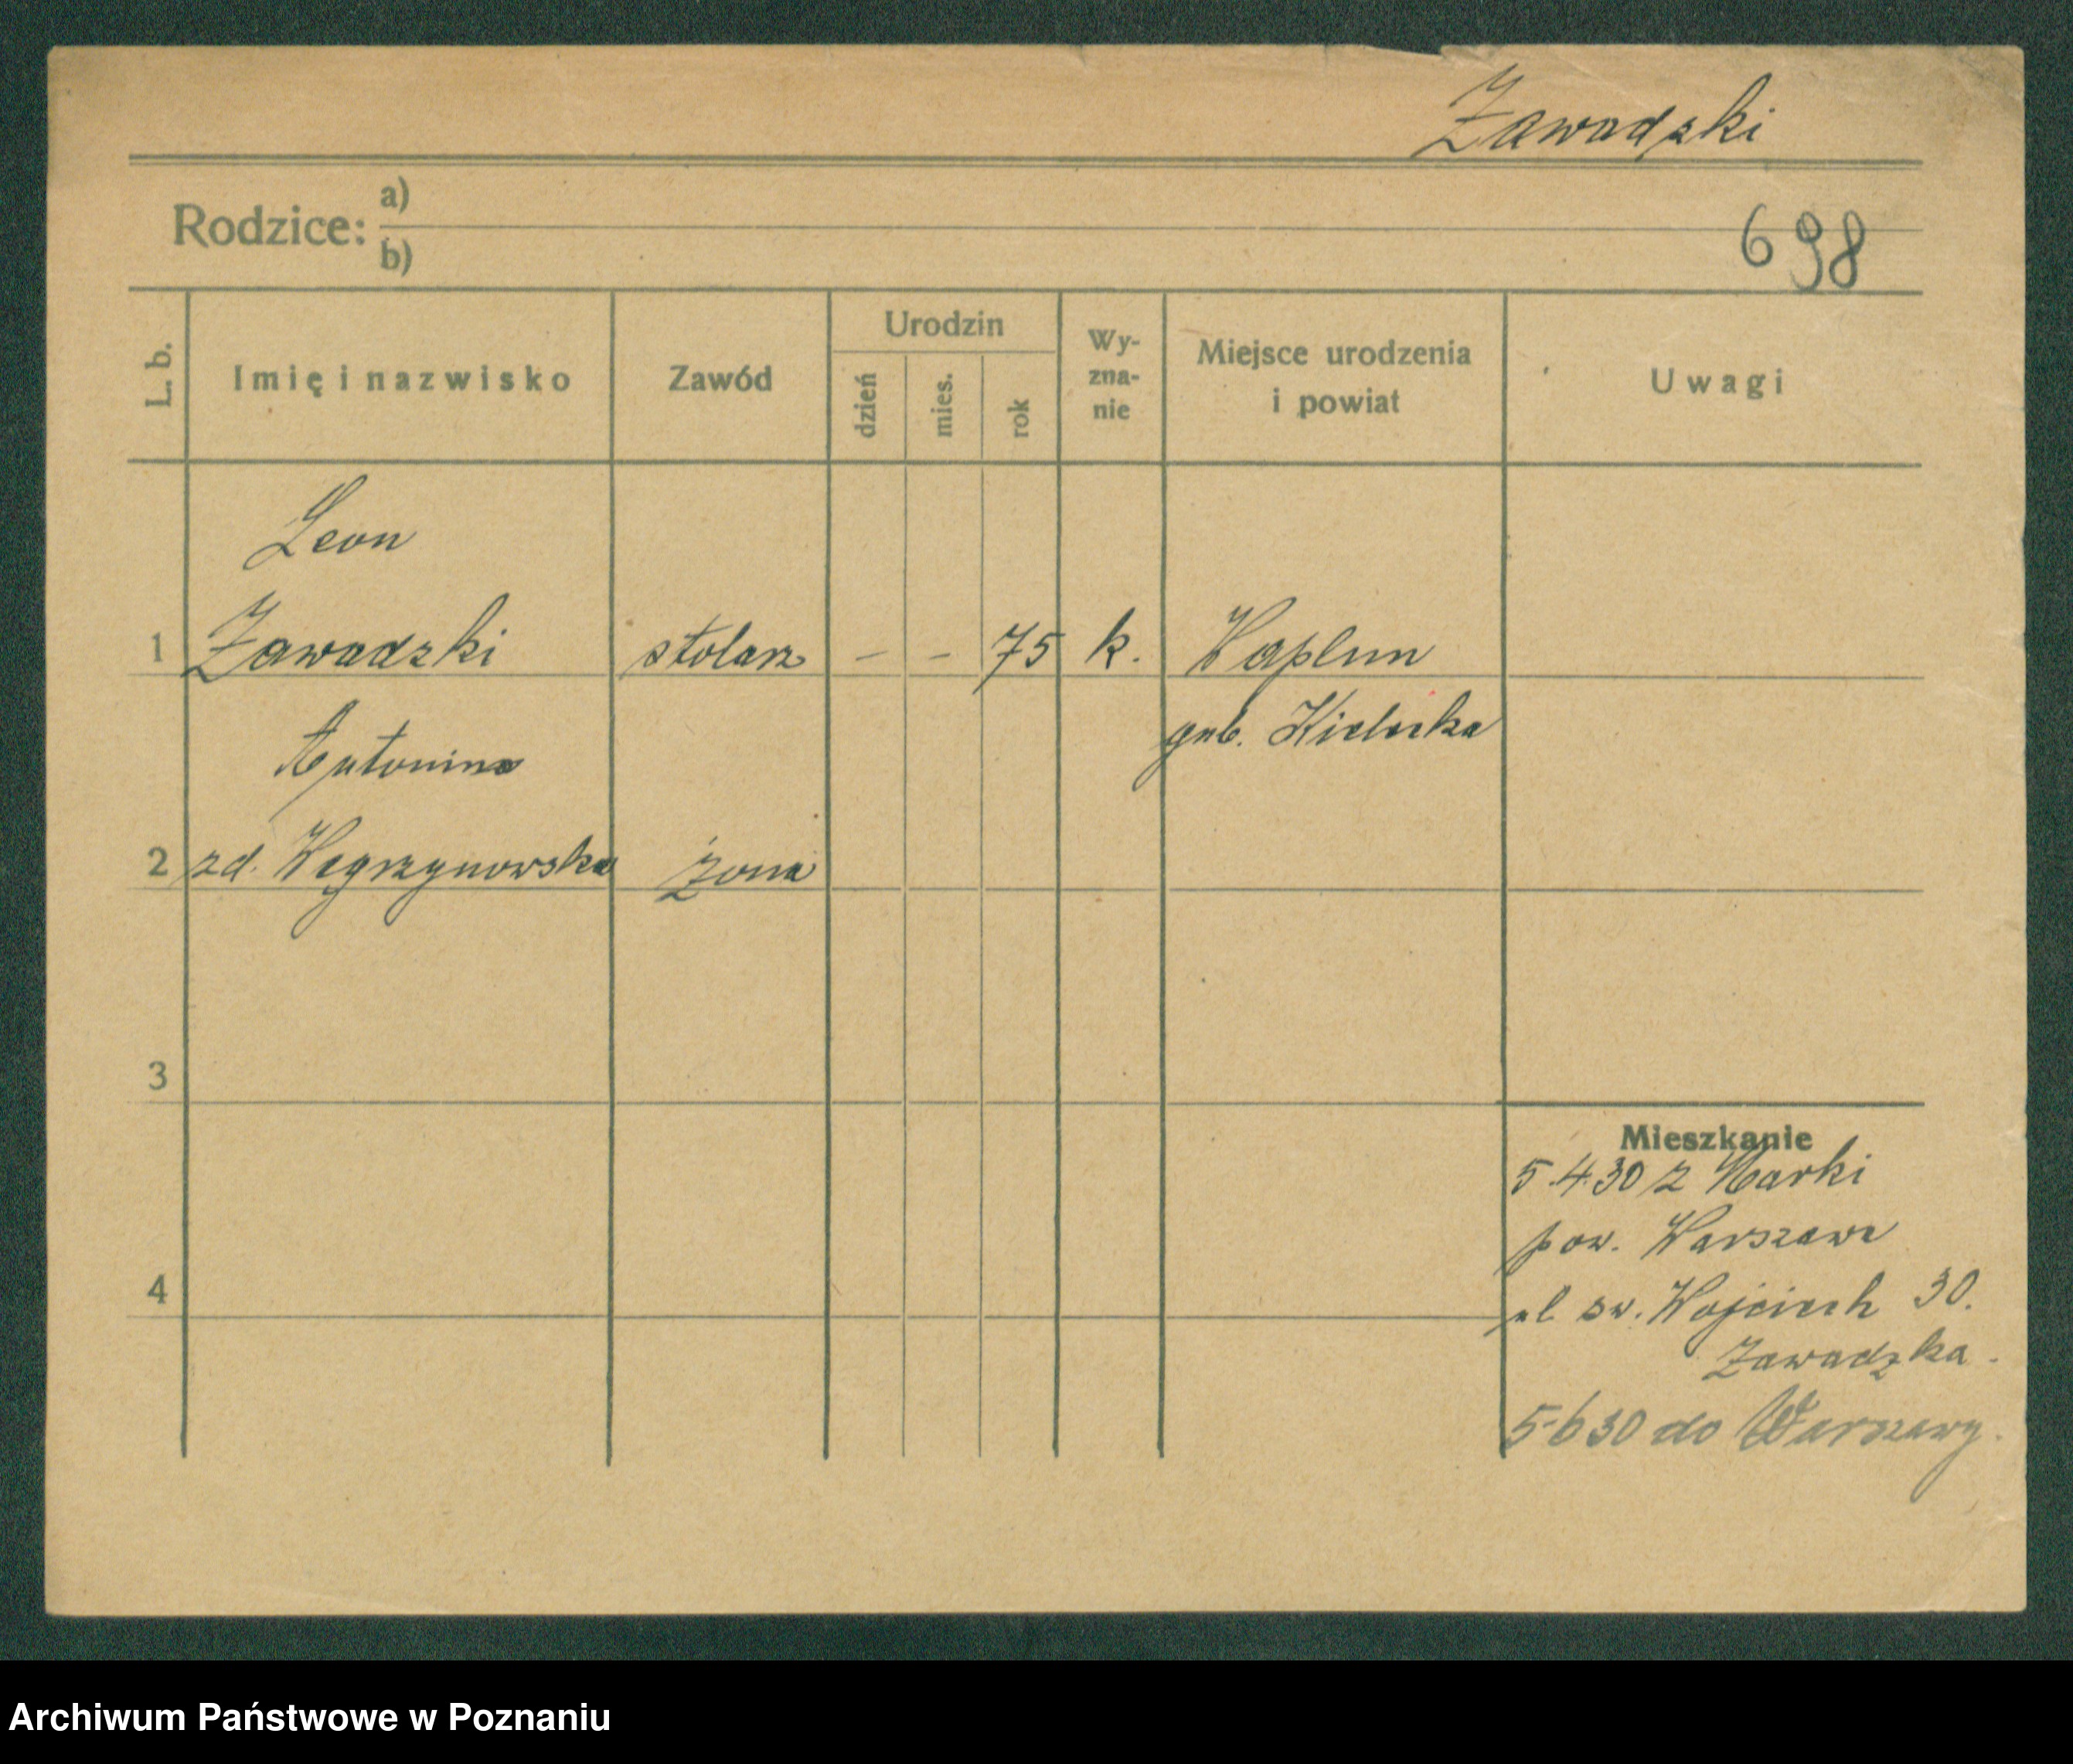 Zawadzki
Rodzice: a)
b)
698
L. b.
Imię i nazwisko
Zawód
Urodzin
dzień
mies.
rok
Wy-
zna-
nie
Miejsce urodzenia
i powiat
Uwagi
Leon
1 Zawadzki stolarz – – 75 k.
gub. Kielecka
Antonina
2 zd. Węgrzynowska żona
3
4
Mieszkanie
5.4.30 z Marki
pow. Warszawa
ul. św. Wojciech 30.
Zawadzka.
5-6 30 do Warszawy.
Archiwum Państwowe w Poznaniu